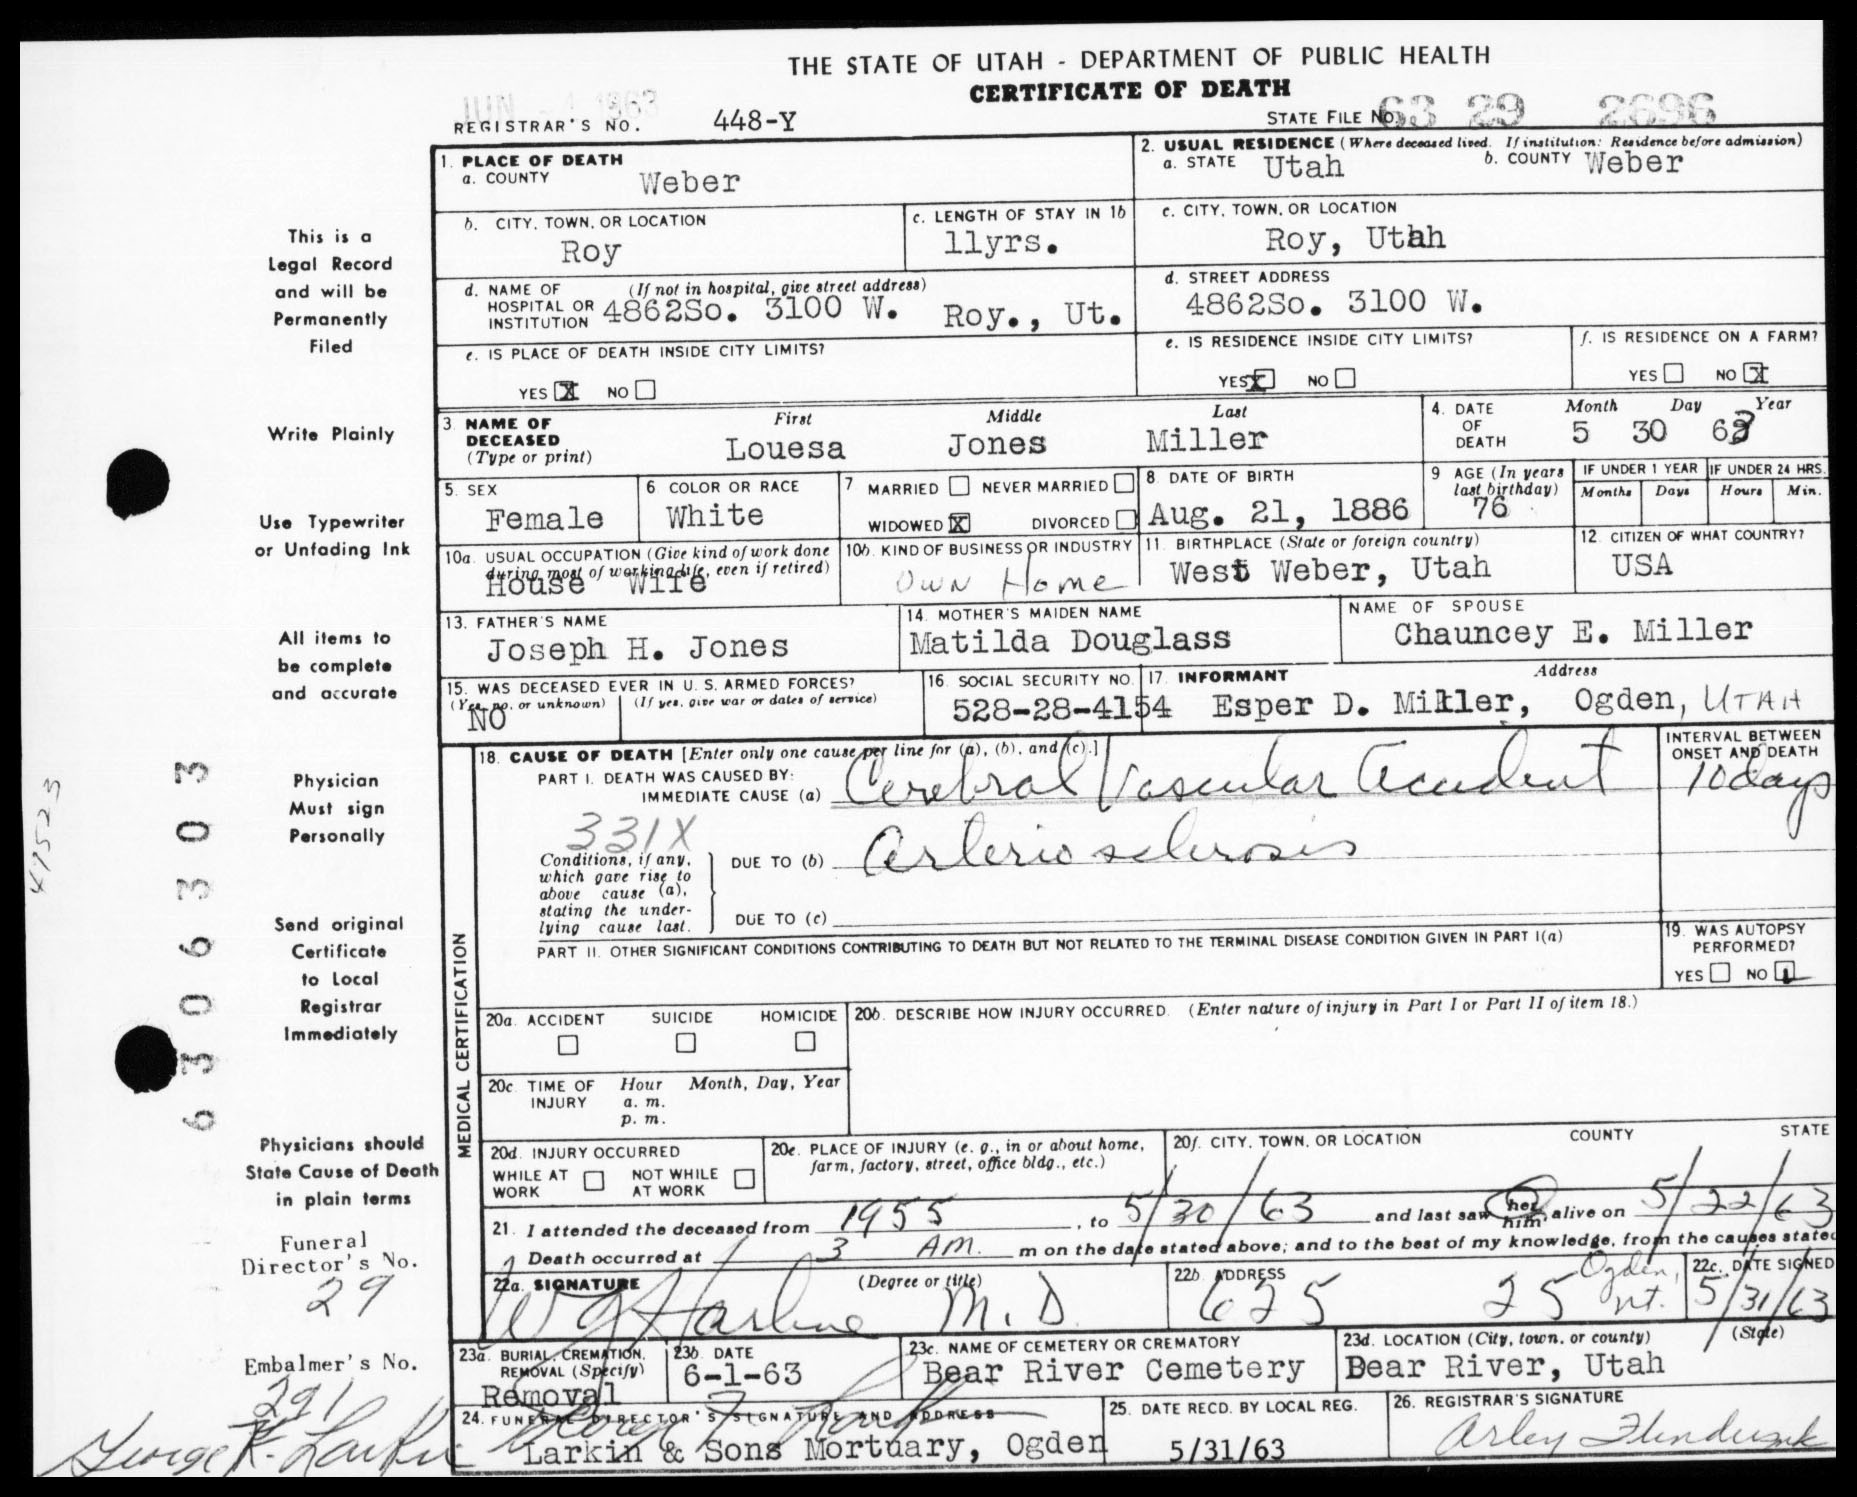 THE STATE OF UTAH - DEPARTMENT OF PUBLIC HEALTH
CERTIFICATE OF DEATH
JUN - 4 1963
REGISTRAR'S NO. 448-Y
STATE FILE NO. 63 29 2696
1. PLACE OF DEATH
a. COUNTY Weber
2. USUAL RESIDENCE (Where deceased lived. If institution: Residence before admission)
a. STATE Utah b. COUNTY Weber
b. CITY, TOWN, OR LOCATION
Roy
c. LENGTH OF STAY IN 1b
11yrs.
c. CITY, TOWN, OR LOCATION
Roy, Utah
d. NAME OF HOSPITAL OR INSTITUTION (If not in hospital, give street address)
4862So. 3100 W. Roy., Ut.
d. STREET ADDRESS
4862So. 3100 W.
e. IS PLACE OF DEATH INSIDE CITY LIMITS?
YES X NO
e. IS RESIDENCE INSIDE CITY LIMITS?
YES X NO
f. IS RESIDENCE ON A FARM?
YES NO X
3. NAME OF DECEASED (Type or print)
First Middle Last
Louesa Jones Miller
4. DATE OF DEATH
Month Day Year
5 30 63
5. SEX
Female
6 COLOR OR RACE
White
7 MARRIED NEVER MARRIED
WIDOWED X DIVORCED
8. DATE OF BIRTH
Aug. 21, 1886
9 AGE (In years last birthday)
76
IF UNDER 1 YEAR
Months Days
IF UNDER 24 HRS.
Hours Min.
10a. USUAL OCCUPATION (Give kind of work done during most of working life, even if retired)
House Wife
10b. KIND OF BUSINESS OR INDUSTRY
OWN Home
11. BIRTHPLACE (State or foreign country)
West Weber, Utah
12. CITIZEN OF WHAT COUNTRY?
USA
13. FATHER'S NAME
Joseph H. Jones
14. MOTHER'S MAIDEN NAME
Matilda Douglass
NAME OF SPOUSE
Chauncey E. Miller
15. WAS DECEASED EVER IN U. S. ARMED FORCES?
(Yes, no, or unknown) (If yes, give war or dates of service)
NO
16. SOCIAL SECURITY NO.
528-28-4154
17. INFORMANT Address
Esper D. Miller, Ogden, UTAH
MEDICAL CERTIFICATION
18. CAUSE OF DEATH [Enter only one cause per line for (a), (b), and (c).]
INTERVAL BETWEEN ONSET AND DEATH
PART I. DEATH WAS CAUSED BY:
IMMEDIATE CAUSE (a) Cerebral Vascular Accident 10 days
331X
Conditions, if any, which gave rise to above cause (a), stating the underlying cause last.
DUE TO (b) Arterio sclerosis
DUE TO (c)
PART II. OTHER SIGNIFICANT CONDITIONS CONTRIBUTING TO DEATH BUT NOT RELATED TO THE TERMINAL DISEASE CONDITION GIVEN IN PART I(a)
19. WAS AUTOPSY PERFORMED?
YES NO
20a. ACCIDENT SUICIDE HOMICIDE
20b. DESCRIBE HOW INJURY OCCURRED. (Enter nature of injury in Part I or Part II of item 18.)
20c. TIME OF INJURY
Hour Month, Day, Year
a. m.
p. m.
20d. INJURY OCCURRED
WHILE AT WORK NOT WHILE AT WORK
20e. PLACE OF INJURY (e. g., in or about home, farm, factory, street, office bldg., etc.)
20f. CITY, TOWN, OR LOCATION COUNTY STATE
21. I attended the deceased from 1955, to 5/30/63 and last saw her him alive on 5/22/63
Death occurred at 3 AM. m on the date stated above; and to the best of my knowledge, from the causes stated
22a. SIGNATURE (Degree or title)
M. D
22b. ADDRESS
625 25 Ogden, Ut.
22c. DATE SIGNED
5/31/63
23a. BURIAL, CREMATION, REMOVAL (Specify)
Removal
23b. DATE
6-1-63
23c. NAME OF CEMETERY OR CREMATORY
Bear River Cemetery
23d. LOCATION (City, town, or county) (State)
Bear River, Utah
24. FUNERAL DIRECTOR'S SIGNATURE AND ADDRESS
Larkin & Sons Mortuary, Ogden
25. DATE RECD. BY LOCAL REG.
5/31/63
26. REGISTRAR'S SIGNATURE
Arley
This is a
Legal Record
and will be
Permanently
Filed
Write Plainly
Use Typewriter
or Unfading Ink
All items to
be complete
and accurate
Physician
Must sign
Personally
Send original
Certificate
to Local
Registrar
Immediately
Physicians should
State Cause of Death
in plain terms
Funeral
Director's No.
29
Embalmer's No.
291
George K. Larkin
6 3 0 6 3 0 3